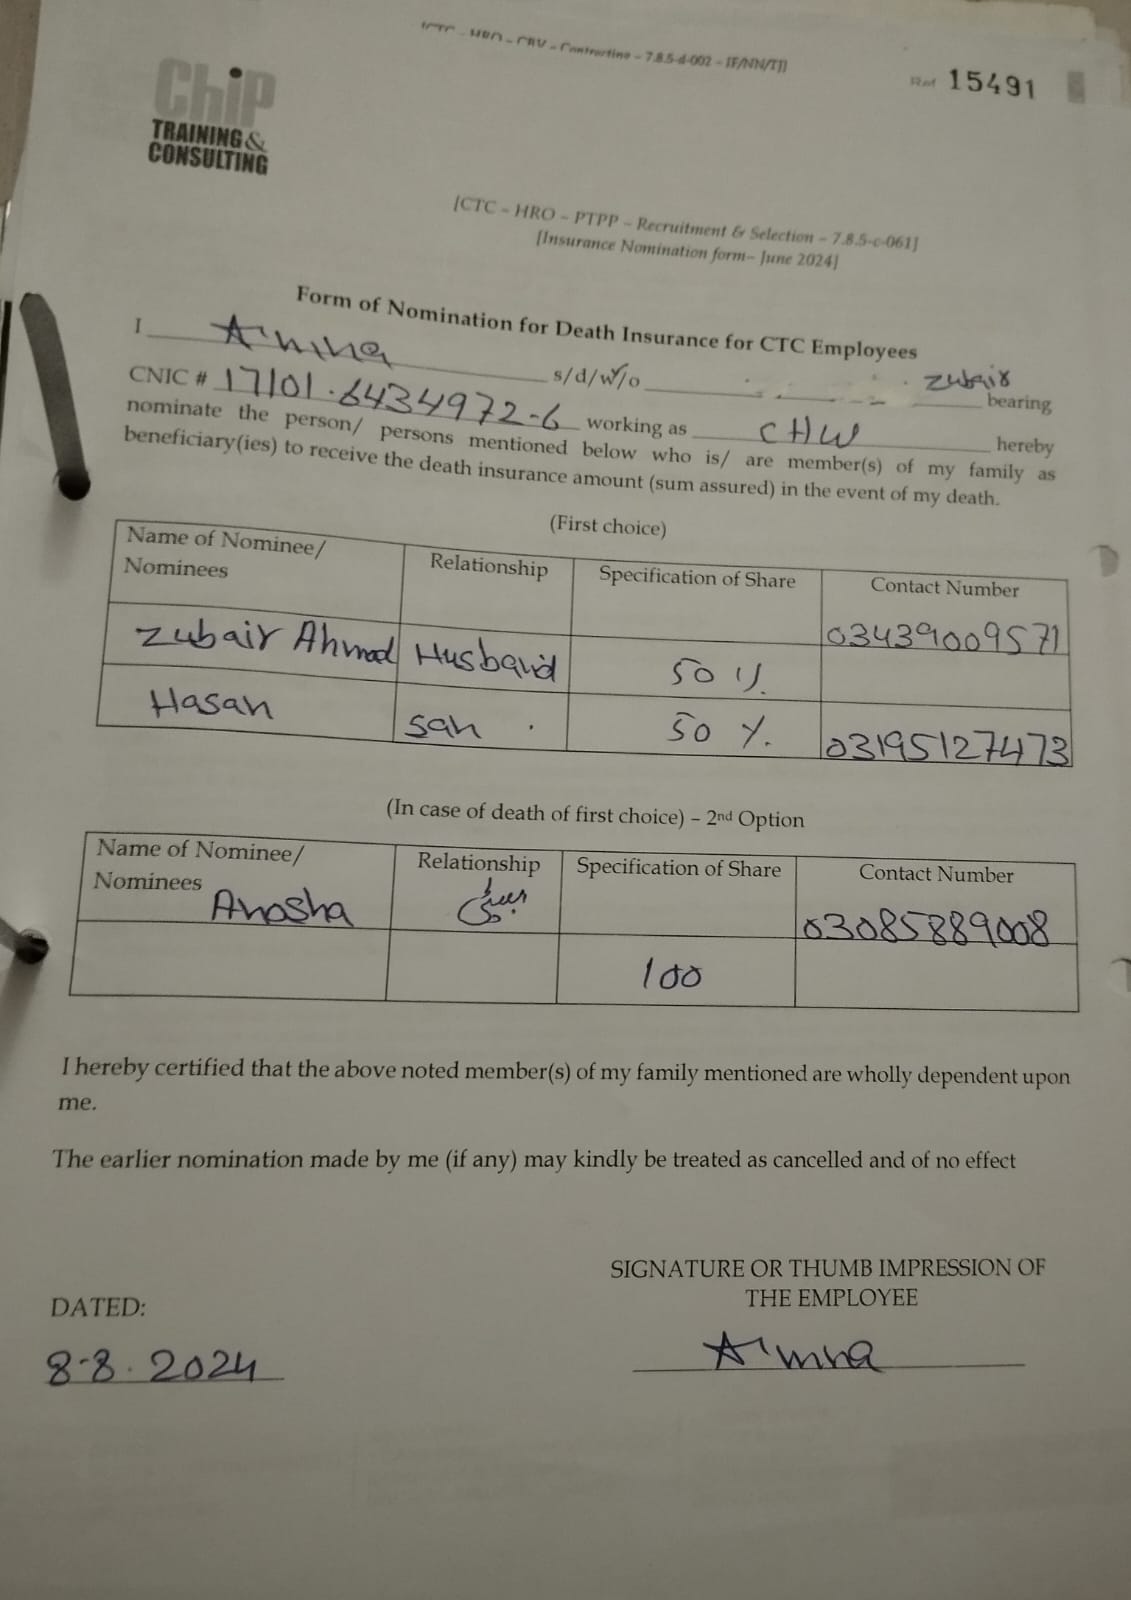 [CTC - HRO - CRV - Contracting - 7.8.5-d-002 - IF/NN/TJ]
Ref 15491
ChiP
TRAINING &
CONSULTING
[CTC – HRO – PTPP – Recruitment & Selection – 7.8.5-c-061]
[Insurance Nomination form– June 2024]
Form of Nomination for Death Insurance for CTC Employees
I A'mna s/d/w/o zubair bearing
CNIC # 17101.6434972-6 working as CHW hereby
nominate the person/ persons mentioned below who is/ are member(s) of my family as
beneficiary(ies) to receive the death insurance amount (sum assured) in the event of my death.
(First choice)
Name of Nominee/ Nominees Relationship Specification of Share Contact Number
03439009571
Zubair Ahmad Husband 50 %
Hasan san 50 %. 03195127473
(In case of death of first choice) – 2nd Option
Name of Nominee/ Nominees Relationship Specification of Share Contact Number
Anosha 03085889008
100
I hereby certified that the above noted member(s) of my family mentioned are wholly dependent upon
me.
The earlier nomination made by me (if any) may kindly be treated as cancelled and of no effect
SIGNATURE OR THUMB IMPRESSION OF
THE EMPLOYEE
DATED:
8-8.2024
A'mna